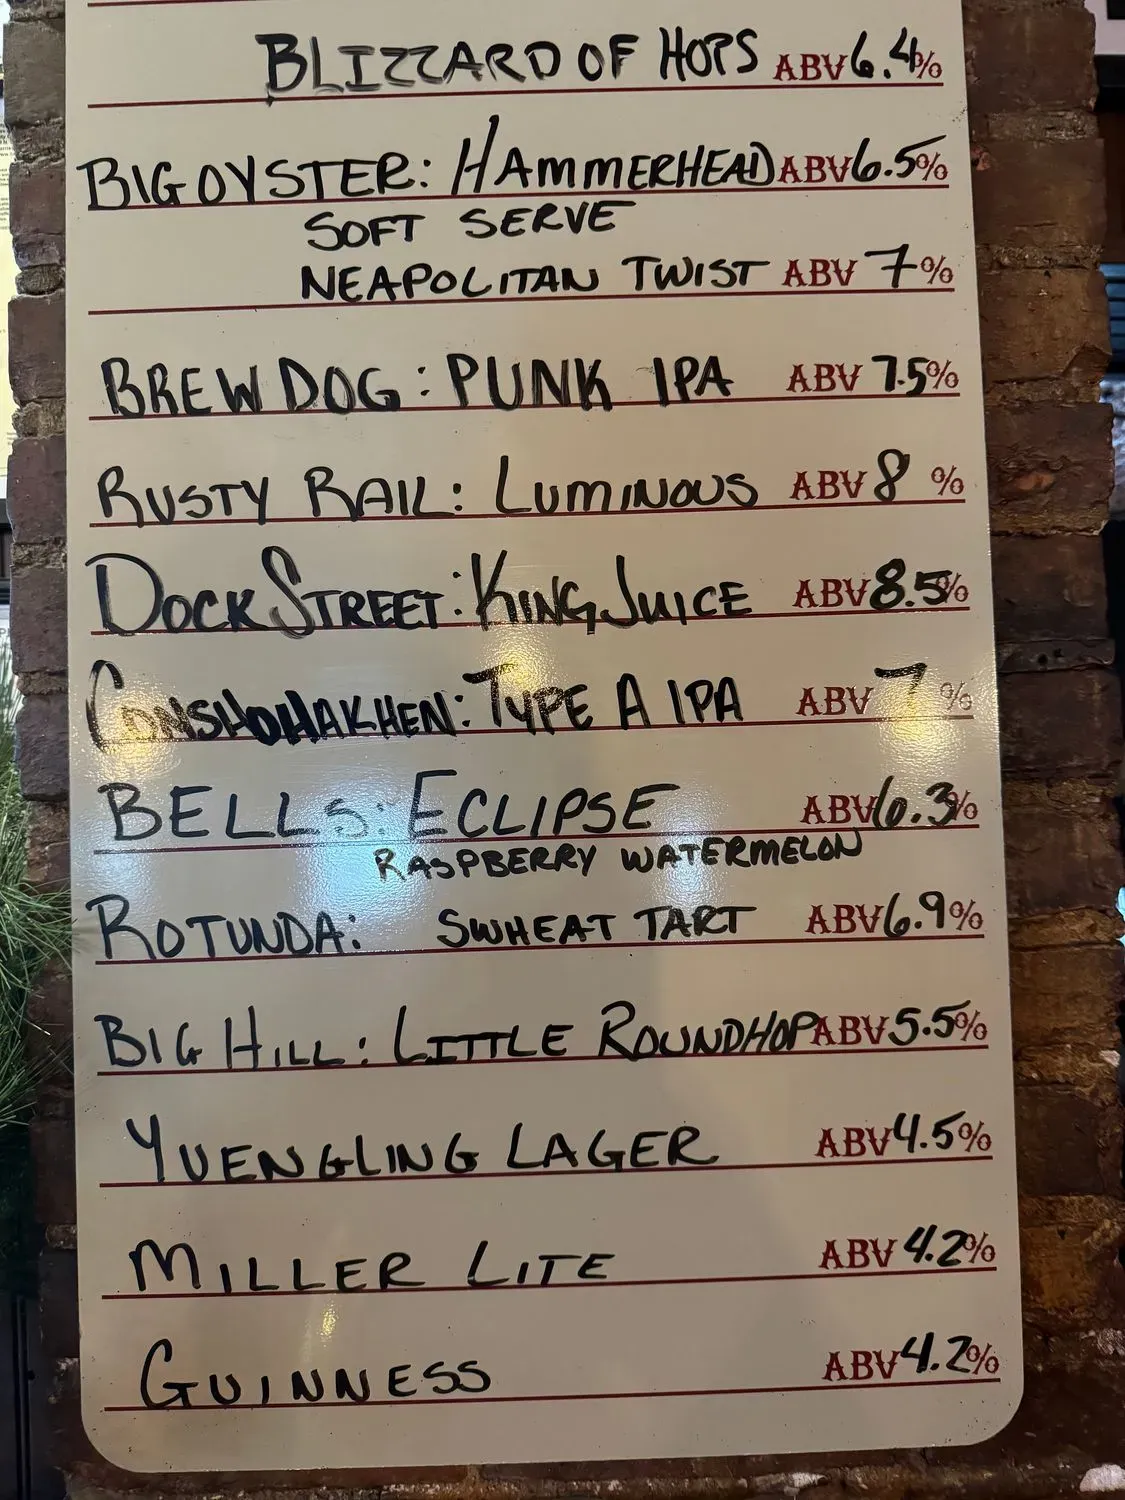 BLIZZARD OF HOPS ABV 6.4%
BIG OYSTER: HAMMERHEAD ABV 6.5%
SOFT SERVE
NEAPOLITAN TWIST ABV 7%
BREWDOG: PUNK IPA ABV 7.5%
RUSTY RAIL: LUMINOUS ABV 8%
DOCK STREET: KING JUICE ABV 8.5%
CONSHOHAKHEN: TYPE A IPA ABV 7%
BELLS: ECLIPSE ABV 6.3%
RASPBERRY WATERMELON
ROTUNDA: SWHEAT TART ABV 6.9%
BIG HILL: LITTLE ROUNDHOP ABV 5.5%
YUENGLING LAGER ABV 4.5%
MILLER LITE ABV 4.2%
GUINNESS ABV 4.2%